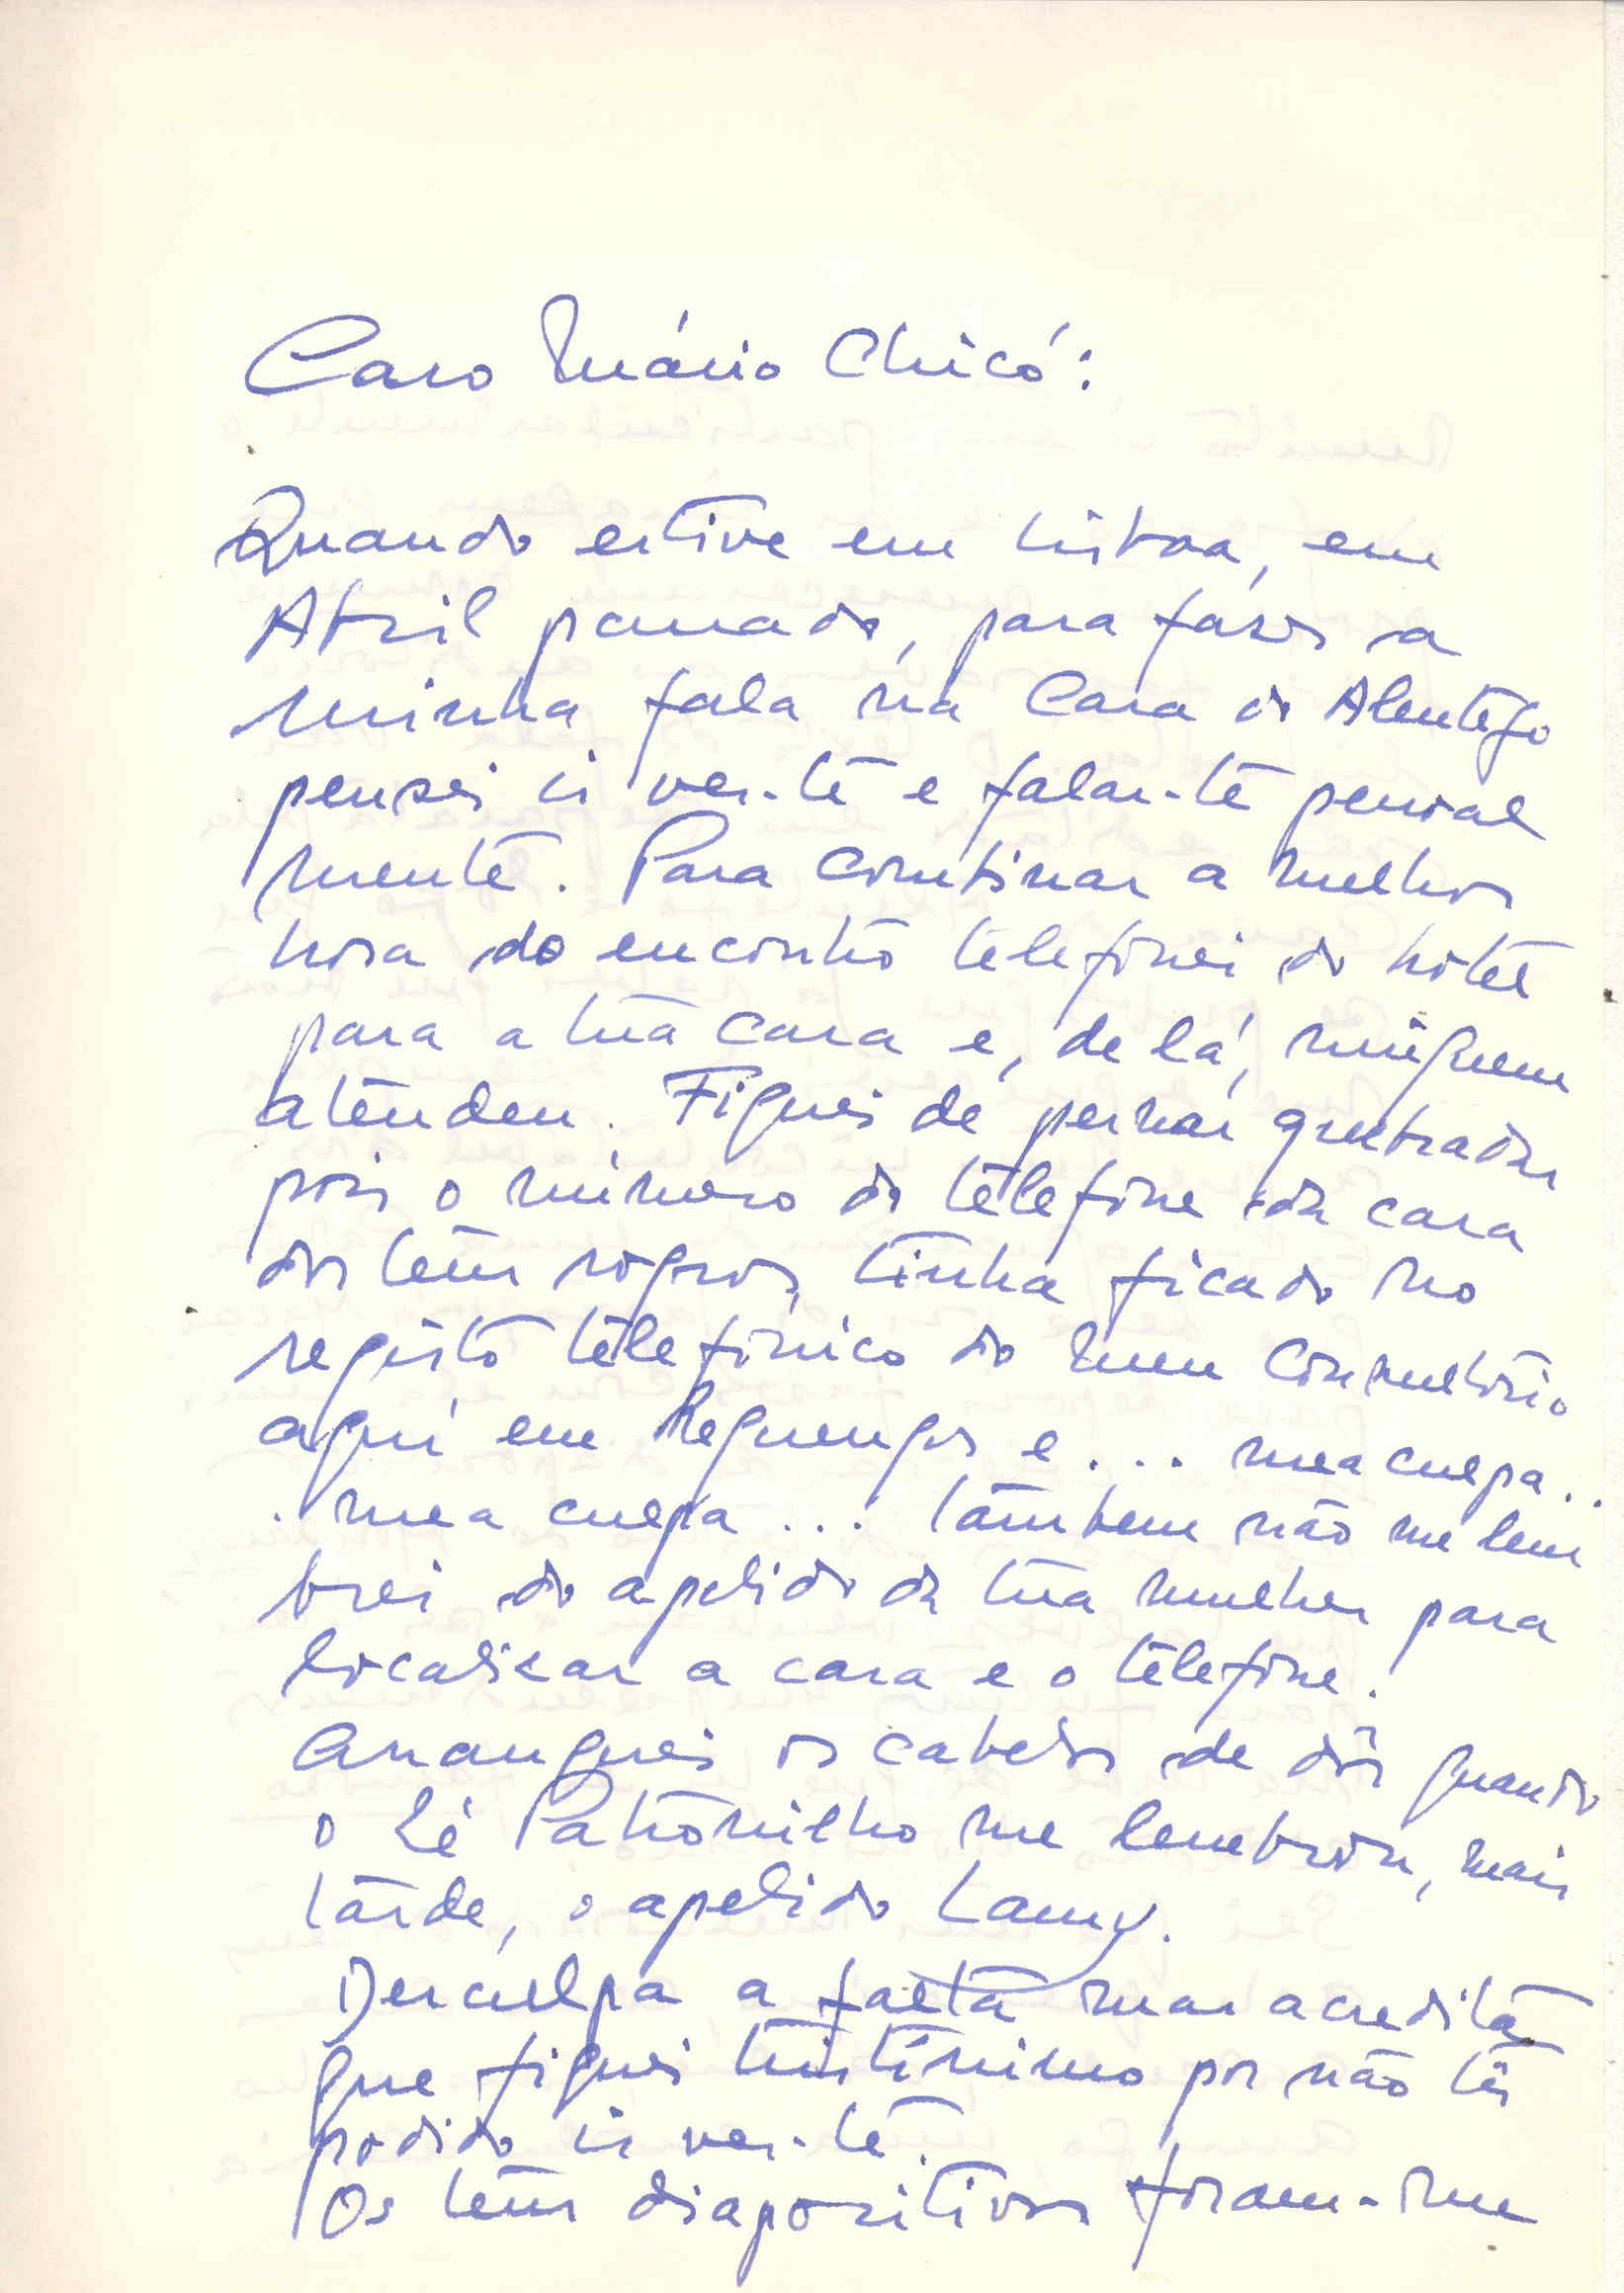 Caro Mário Chicó:
Quando estive em Lisboa, em
Abril passado, para fazer a
minha fala na Casa do Alentejo
pensei ir ver-te e falar-te pessoal
mente. Para combinar a melhor
hora do encontro telefonei do hotel
para a tua casa e, de lá, ninguem
atendeu. Fiquei de pernas quebradas
pois o número do telefone da casa
dos teus sogros, tinha ficado no
registo telefónico do meu Consultório
aqui em Reguengos e... mea culpa..
. mea culpa... tambem não me lem
brei do apelido da tua mulher para
localizar a casa e o telefone.
Arranquei os cabelos de dôr quando
o Zé Patronilho me lembrou, mais
tarde, o apelido Lamy.
Desculpa a falta mas acredita
que fiquei tristíssimo por não ter
podido ir ver-te.
Os teus diapositivos foram-me